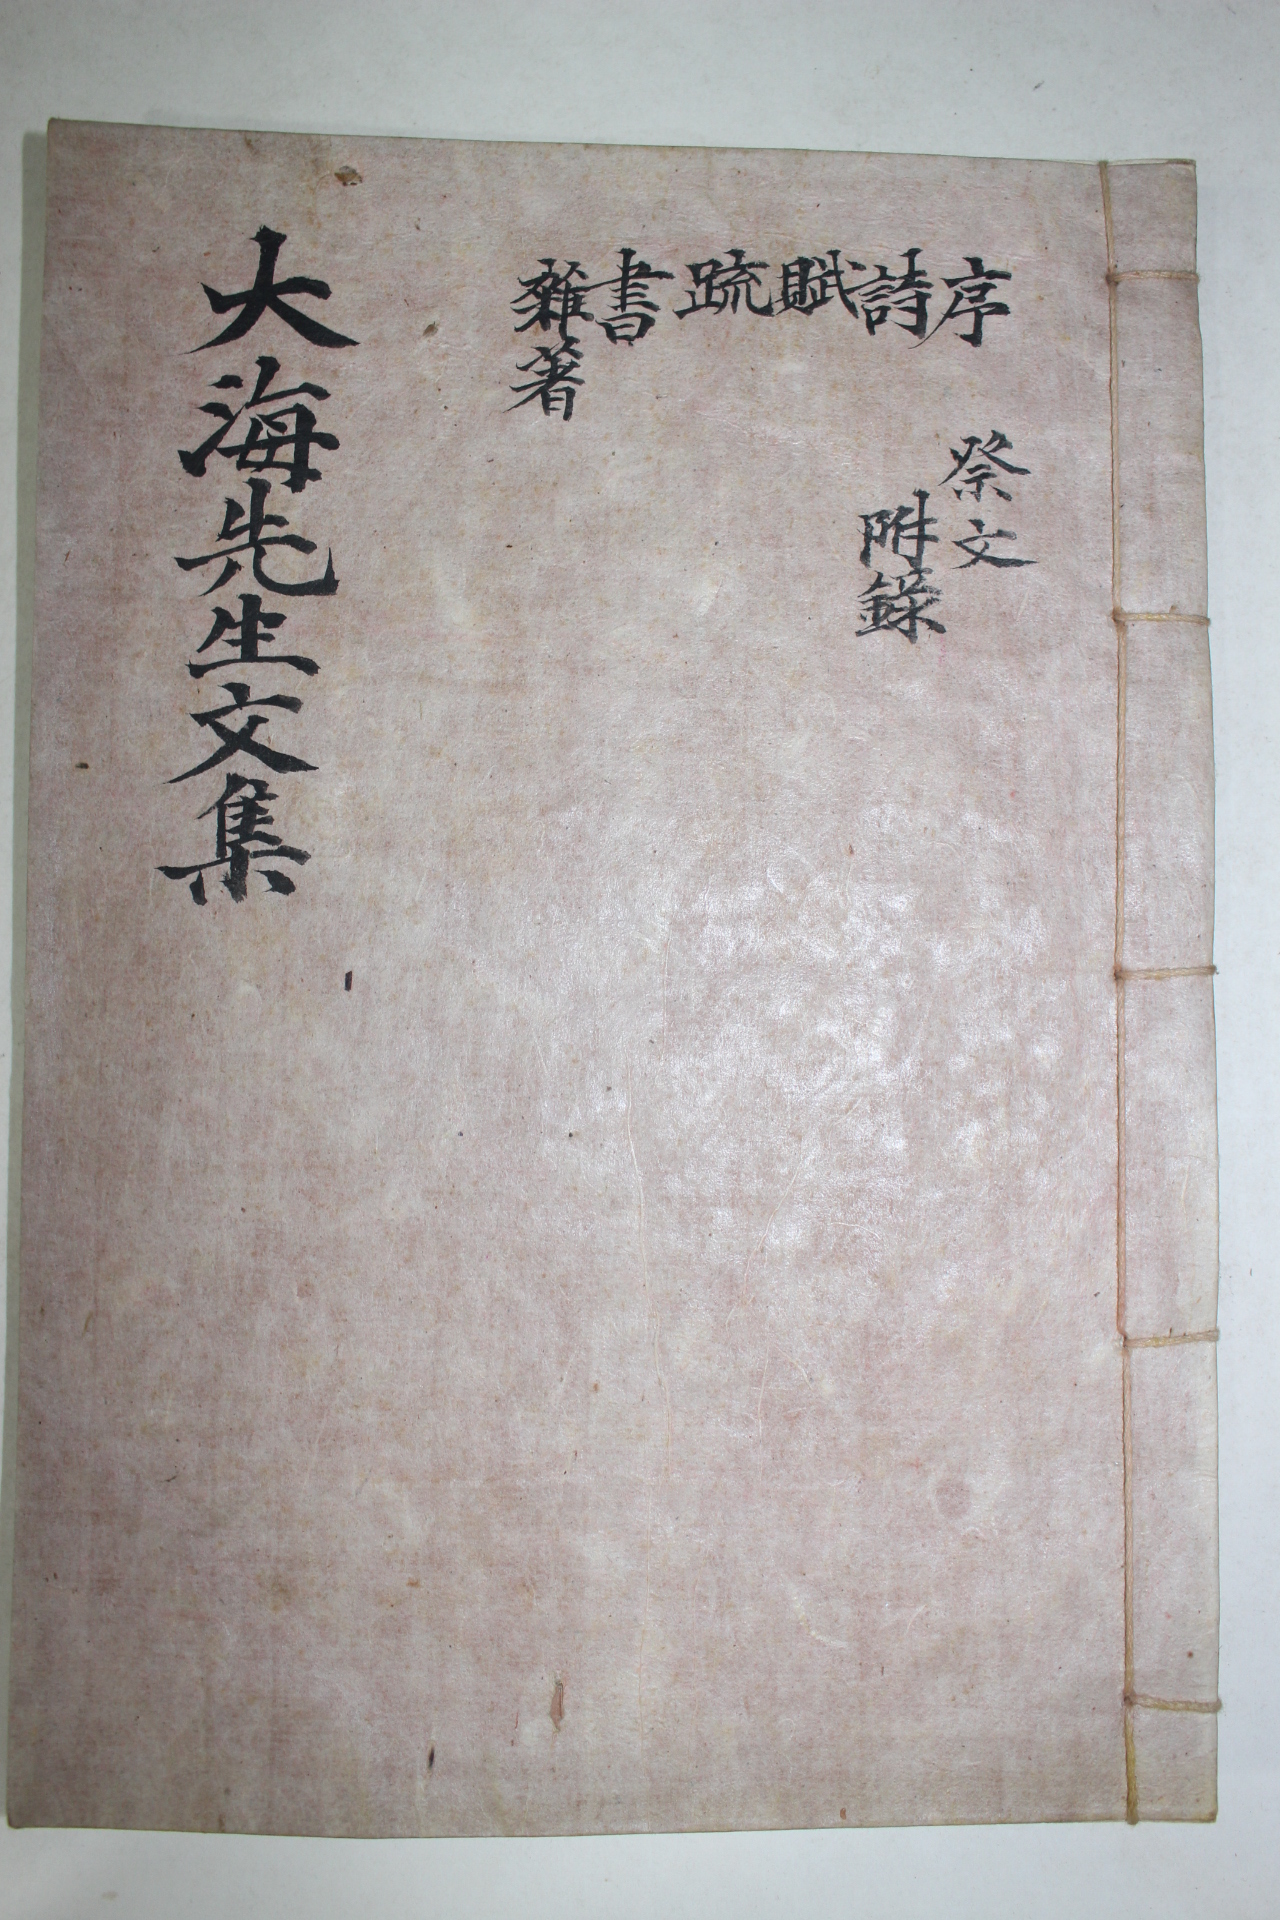 序 詩 賦 疏 書 雜著
祭文
附錄
大海先生文集